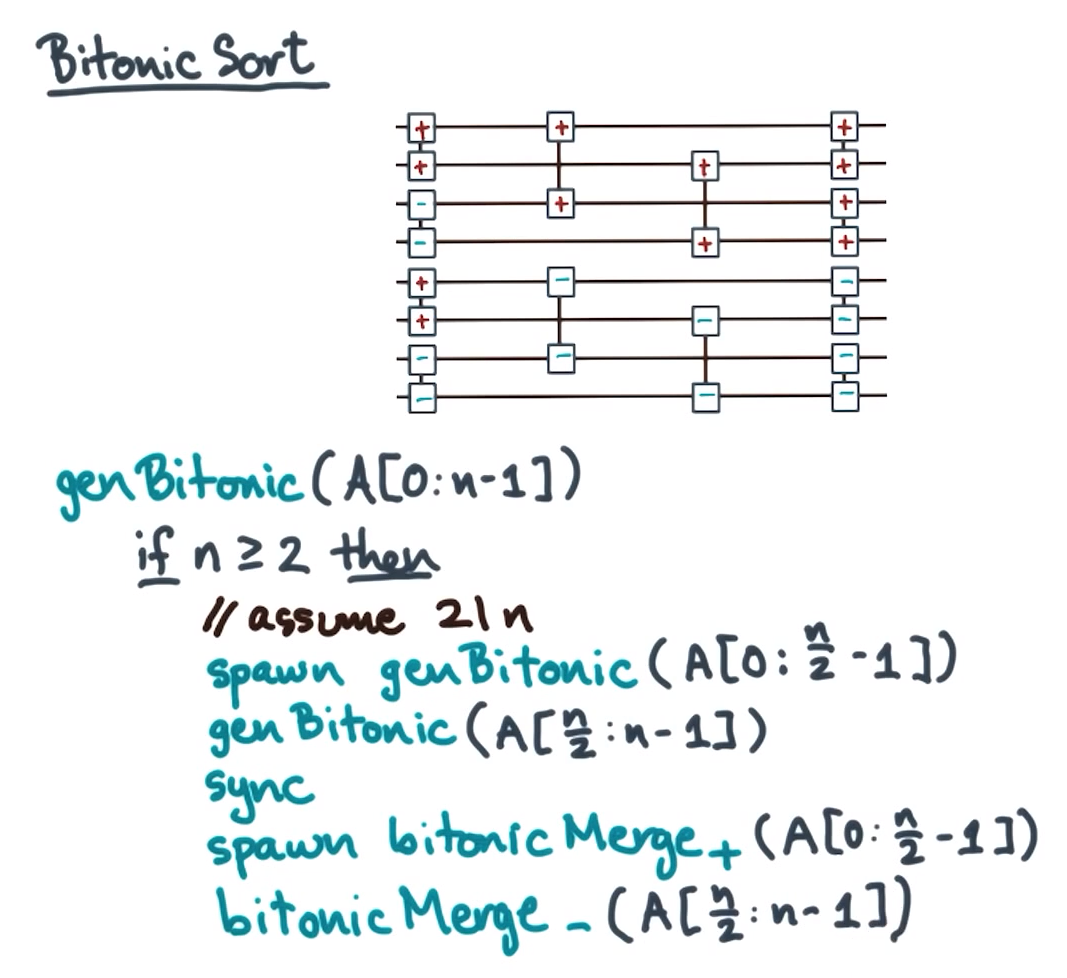 Bitonic Sort
+ +  +
+ + +
- + +
- + +
+ - -
+ - -
- - -
- - -
genBitonic(A[0:n-1])
if n ≥ 2 then
// assume 2|n
spawn genBitonic(A[0:n/2-1])
genBitonic(A[n/2:n-1])
sync
spawn bitonicMerge+(A[0:n/2-1])
bitonicMerge-(A[n/2:n-1])